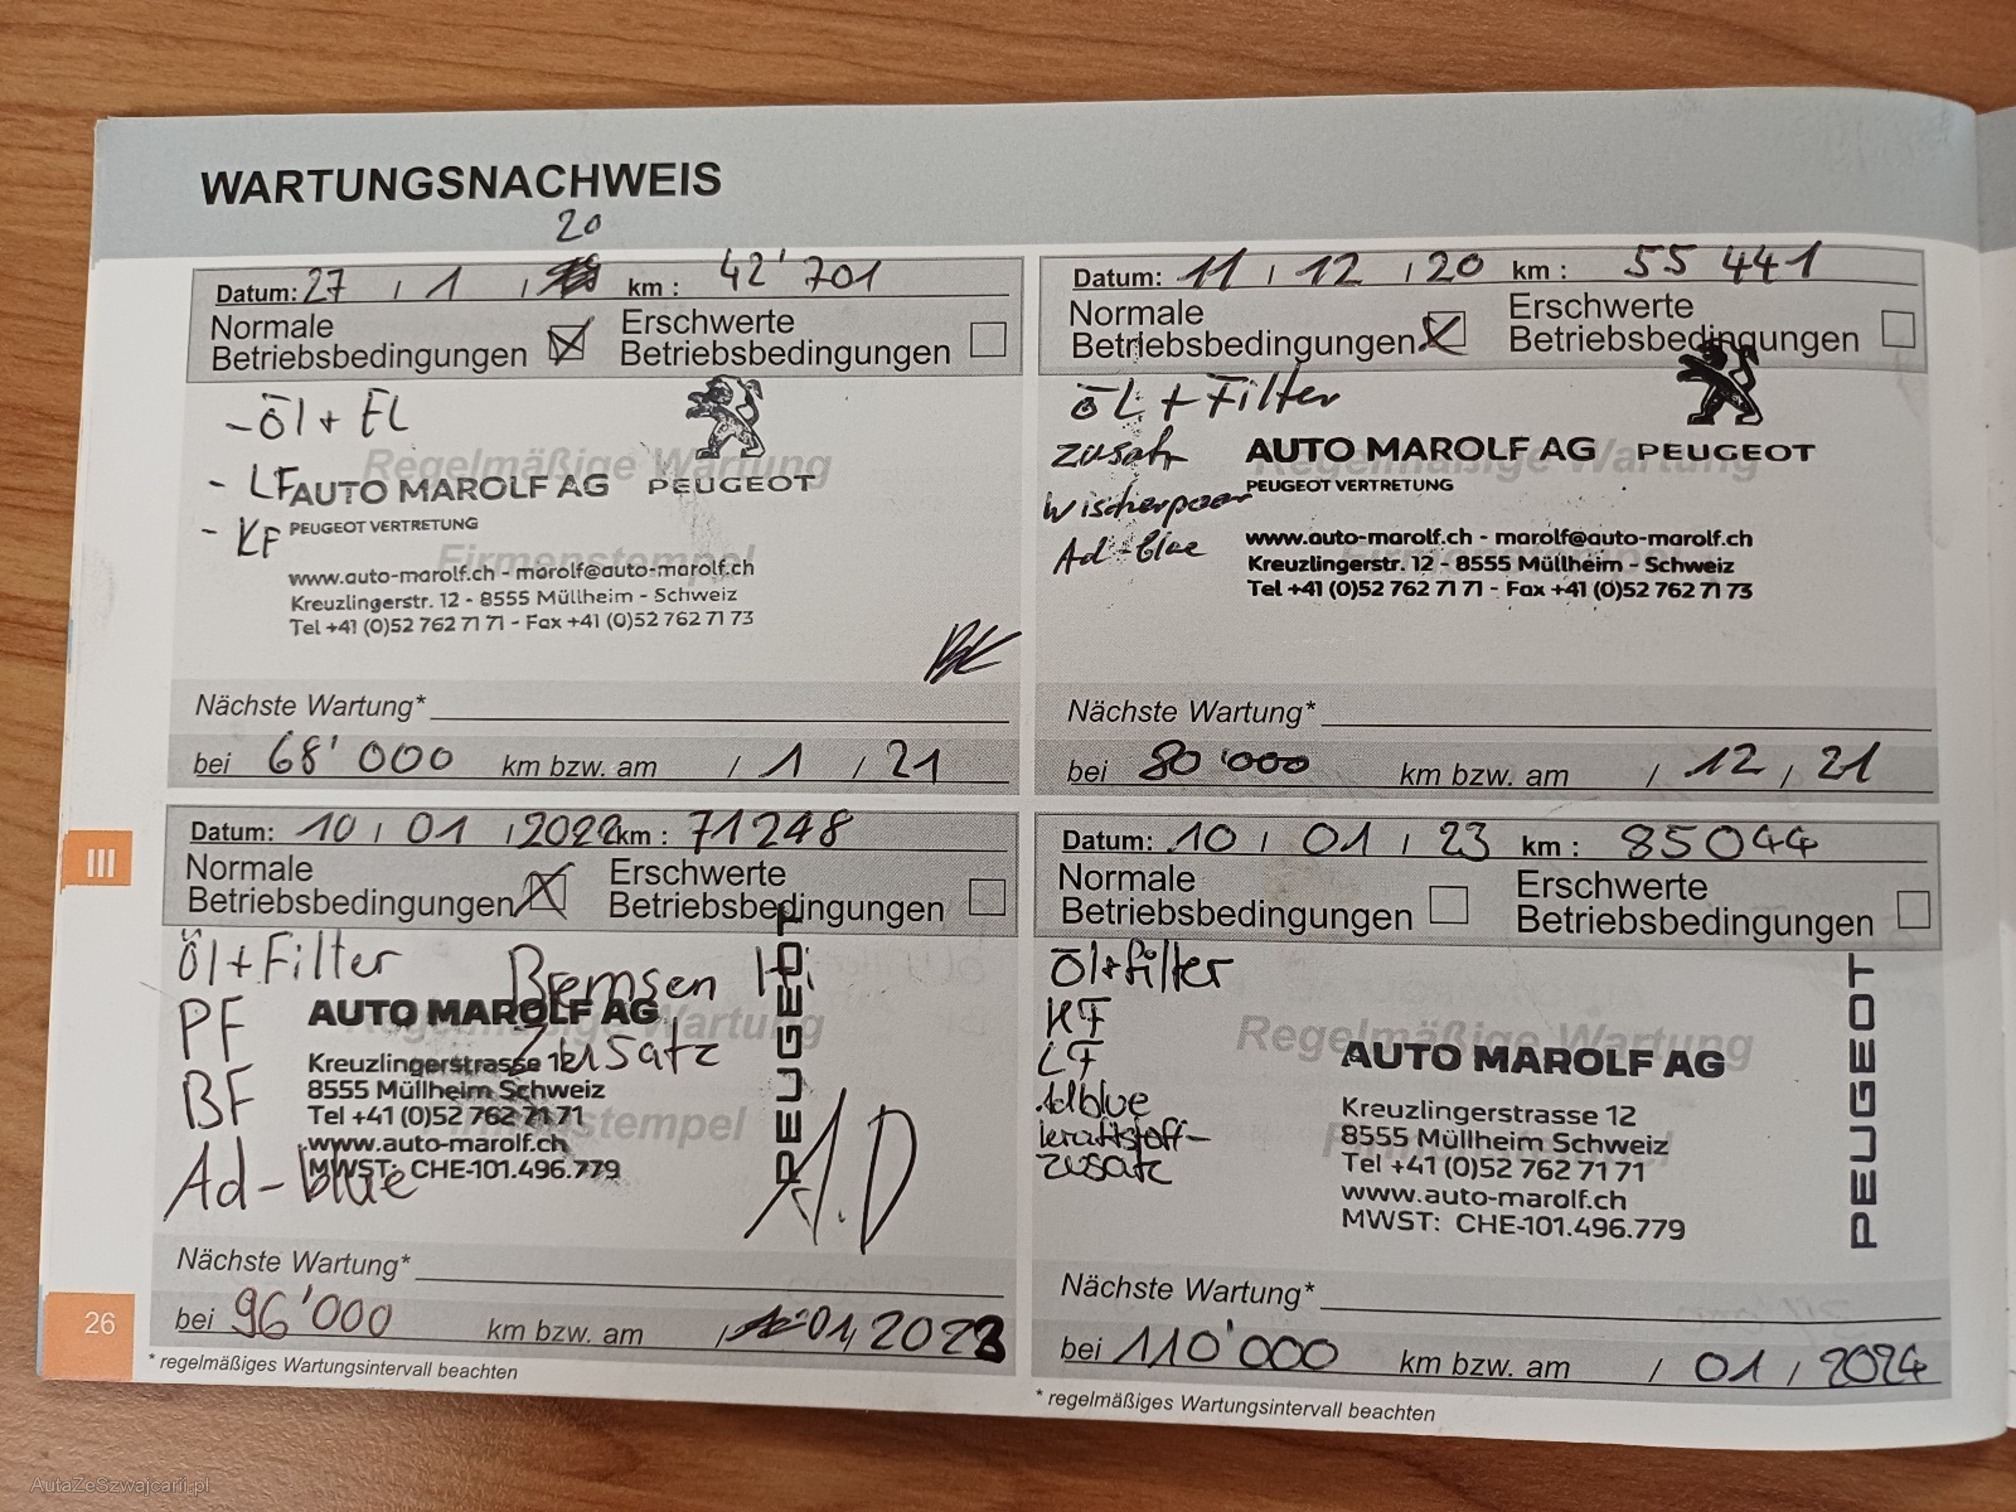 WARTUNGSNACHWEIS
20
Datum: 27 / 1 / km : 42'701
Normale Betriebsbedingungen Erschwerte Betriebsbedingungen
- Öl + FL
Regelmäßige Wartung
- LF AUTO MAROLF AG PEUGEOT
- KF PEUGEOT VERTRETUNG
Firmenstempel
www.auto-marolf.ch - marolf@auto-marolf.ch
Kreuzlingerstr. 12 - 8555 Müllheim - Schweiz
Tel +41 (0)52 762 71 71 - Fax +41 (0)52 762 71 73
Nächste Wartung*
bei 68'000 km bzw. am / 1 / 21
Datum: 11 / 12 / 20 km : 55 441
Normale Betriebsbedingungen Erschwerte Betriebsbedingungen
ÖL + Filter
Zusatz AUTO MAROLF AG PEUGEOT
Regelmäßige Wartung
Wischerpaar PEUGEOT VERTRETUNG
Ad-blue www.auto-marolf.ch - marolf@auto-marolf.ch
Firmenstempel
Kreuzlingerstr. 12 - 8555 Müllheim - Schweiz
Tel +41 (0)52 762 71 71 - Fax +41 (0)52 762 71 73
Nächste Wartung*
bei 80'000 km bzw. am / 12 / 21
III
Datum: 10 / 01 / 2022 km : 71248
Normale Betriebsbedingungen Erschwerte Betriebsbedingungen
Öl+Filter Bremsen Hi
PF AUTO MAROLF AG
Regelmäßige Wartung
Zusatz
Kreuzlingerstrasse 12
BF 8555 Müllheim Schweiz
Tel +41 (0)52 762 71 71
Firmenstempel
www.auto-marolf.ch
Ad-blue MWST: CHE-101.496.779
PEUGEOT
A.D
Nächste Wartung*
bei 96'000 km bzw. am / 01/ 2023
* regelmäßiges Wartungsintervall beachten
26
Datum: 10 / 01 / 23 km : 85044
Normale Betriebsbedingungen Erschwerte Betriebsbedingungen
Öl+filter
KF
Regelmäßige Wartung
LF AUTO MAROLF AG
Adblue Kreuzlingerstrasse 12
kraftstoff- 8555 Müllheim Schweiz
Firmenstempel
zusatz Tel +41 (0)52 762 71 71
www.auto-marolf.ch
MWST: CHE-101.496.779
PEUGEOT
Nächste Wartung*
bei 110'000 km bzw. am / 01 / 2024
* regelmäßiges Wartungsintervall beachten
AutaZeSzwajcarii.pl